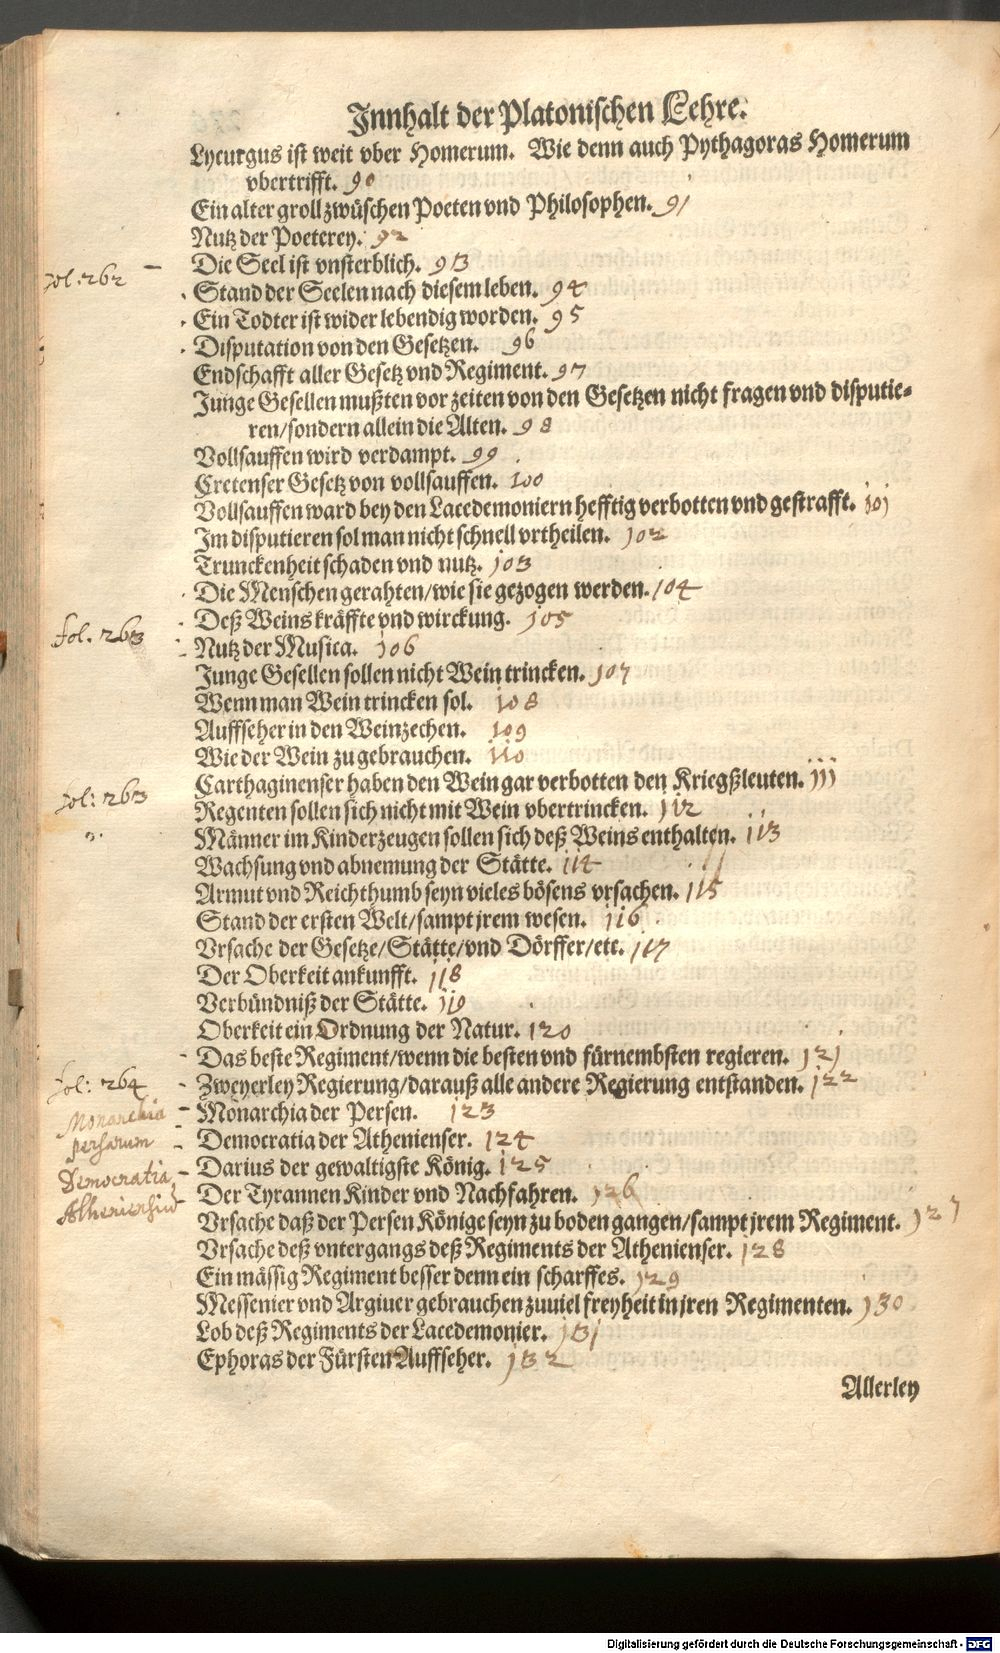 Innhalt der Platonischen Lehre.
Lycurgus ist weit vber Homerum. Wie denn auch Pythagoras Homerum
vbertrifft. 90
Ein alter groll zwüschen Poeten vnd Philosophen. 91
Nutz der Poeterey. 92
Die Seel ist vnsterblich. 93
fol. 262
Stand der Seelen nach diesem leben. 94
Ein Todter ist wider lebendig worden. 95
Disputation von den Gesetzen. 96
Endschafft aller Gesetz vnd Regiment. 97
Junge Gesellen mußten vor zeiten von den Gesetzen nicht fragen vnd disputie-
ren/sondern allein die Alten. 98
Vollsauffen wird verdampt. 99
Cretenser Gesetz von vollsauffen. 100
Vollsauffen ward bey den Lacedemoniern hefftig verbotten vnd gestrafft. 101
Im disputieren sol man nicht schnell vrtheilen. 102
Trunckenheit schaden vnd nutz. 103
Die Menschen gerahten/wie sie gezogen werden. 104
Deß Weins kräffte vnd wirckung. 105
fol. 263
Nutz der Musica. 106
Junge Gesellen sollen nicht Wein trincken. 107
Wenn man Wein trincken sol. 108
Auffseher in den Weinzechen. 109
Wie der Wein zu gebrauchen. 110
Carthaginenser haben den Wein gar verbotten den Kriegßleuten. 111
fol: 263
Regenten sollen sich nicht mit Wein vbertrincken. 112
Männer im Kinderzeugen sollen sich deß Weins enthalten. 113
Wachsung vnd abnemung der Stätte. 114
Armut vnd Reichthumb seyn vieles bösens vrsachen. 115
Stand der ersten Welt/sampt jrem wesen. 116
Vrsache der Gesetze/Stätte/vnd Dörffer/etc. 117
Der Oberkeit ankunfft. 118
Verbündniß der Stätte. 119
Oberkeit ein Ordnung der Natur. 120
Das beste Regiment/wenn die besten vnd fürnembsten regieren. 121
fol: 264
Zweyerley Regierung/darauß alle andere Regierung entstanden. 122
Monarchia
persarum
Monarchia der Persen. 123
Democratia der Athenienser. 124
Democratia
Darius der gewaltigste König. 125
Der Tyrannen Kinder vnd Nachfahren. 126
Vrsache daß der Persen Könige seyn zu boden gangen/sampt jrem Regiment. 127
Vrsache deß vntergangs deß Regiments der Athenienser. 128
Ein mässig Regiment besser denn ein scharffes. 129
Messenier vnd Argiuer gebrauchen zuuiel freyheit in jren Regimenten. 130
Lob deß Regiments der Lacedemonier. 131
Ephoras der Fürsten Auffseher. 132
Allerley
Digitalisierung gefördert durch die Deutsche Forschungsgemeinschaft - DFG